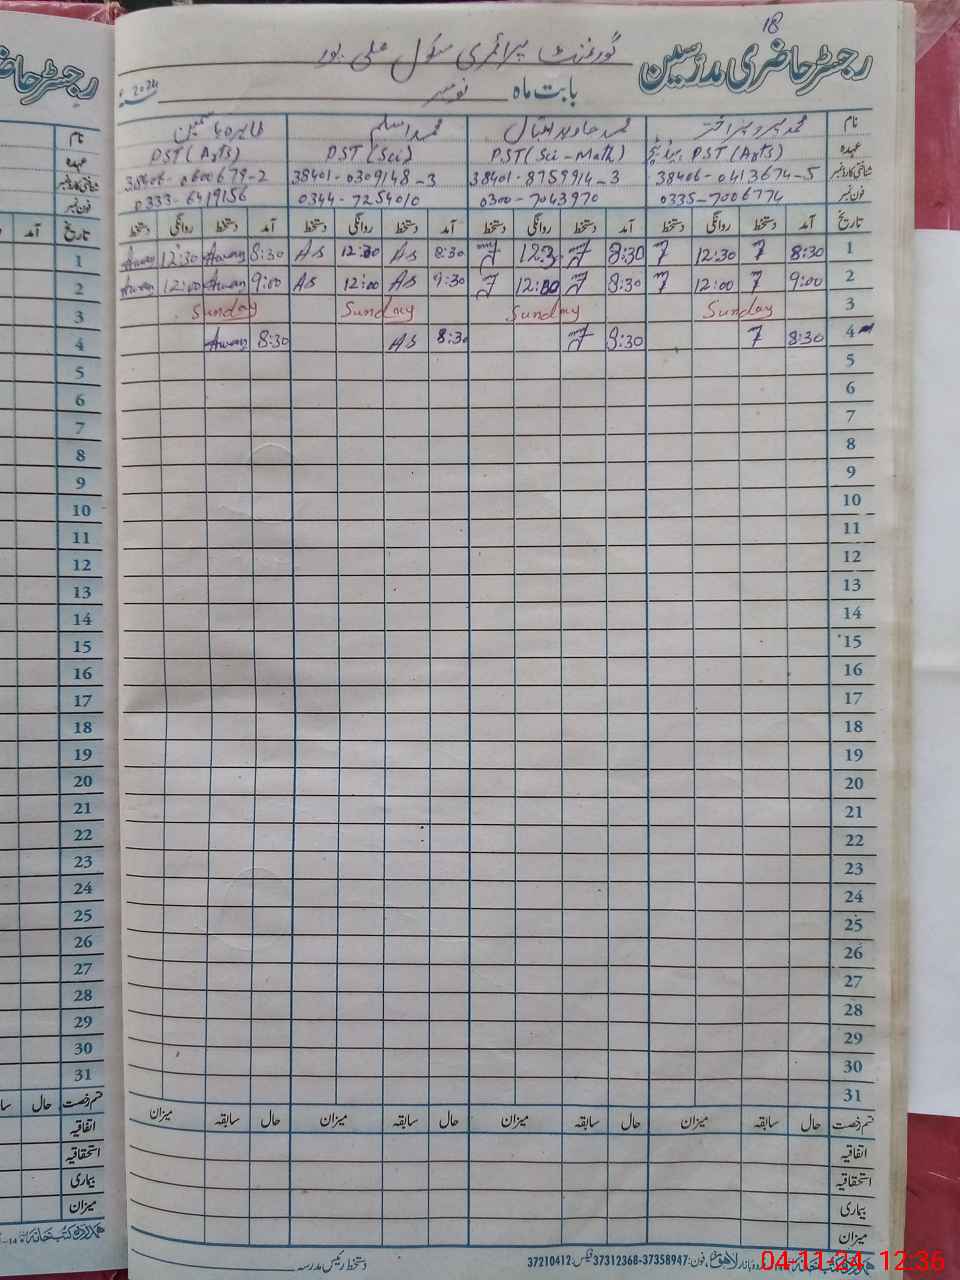 18
گورنمنٹ پرائمری سکول علی پور
رجسٹر حاضری مدرسین
بابت ماہ نومبر 2024ء
نام محمد جاوید اقبال محمد اسلم طاہرہ یاسمین
عہدہ PST (Arts) PST (Sci-Math) PST (Sci) PST (Arts)
شناختی کارڈ نمبر 38406-0413674-5 38401-8759914-3 38401-0309148-3 38406-0600679-2
فون نمبر 0335-7006774 0300-7043970 0344-7254010 0333-6419156
تاریخ آمد دستخط روانگی دستخط آمد دستخط روانگی دستخط آمد دستخط روانگی دستخط آمد دستخط روانگی دستخط
1 8:30 12:30 8:30 12:30 8:30 AS 12:30 AS 8:30 Awan 12:30 Awan
2 9:00 12:00 8:30 12:00 9:30 AS 12:00 AS 9:00 Awan 12:00 Awan
3 Sunday Sunday Sunday Sunday
4 8:30 8:30 8:30 AS 8:30 Awan
5
6
7
8
9
10
11
12
13
14
15
16
17
18
19
20
21
22
23
24
25
26
27
28
29
30
31
قسم رخصت حال سابقہ میزان حال سابقہ میزان حال سابقہ میزان حال سابقہ میزان
اتفاقیہ
استحقاقیہ
بیماری
میزان
لاہور فون: 37358947-37312368 فیکس: 37210412
دستخط رئیس مدرسہ
04-11-24 12:36
رجسٹر حا
نام
عہدہ
شناختی کارڈ نمبر
فون نمبر
تاریخ آمد
1
2
3
4
5
6
7
8
9
10
11
12
13
14
15
16
17
18
19
20
21
22
23
24
25
26
27
28
29
30
31
قسم رخصت حال
اتفاقیہ
استحقاقیہ
بیماری
میزان